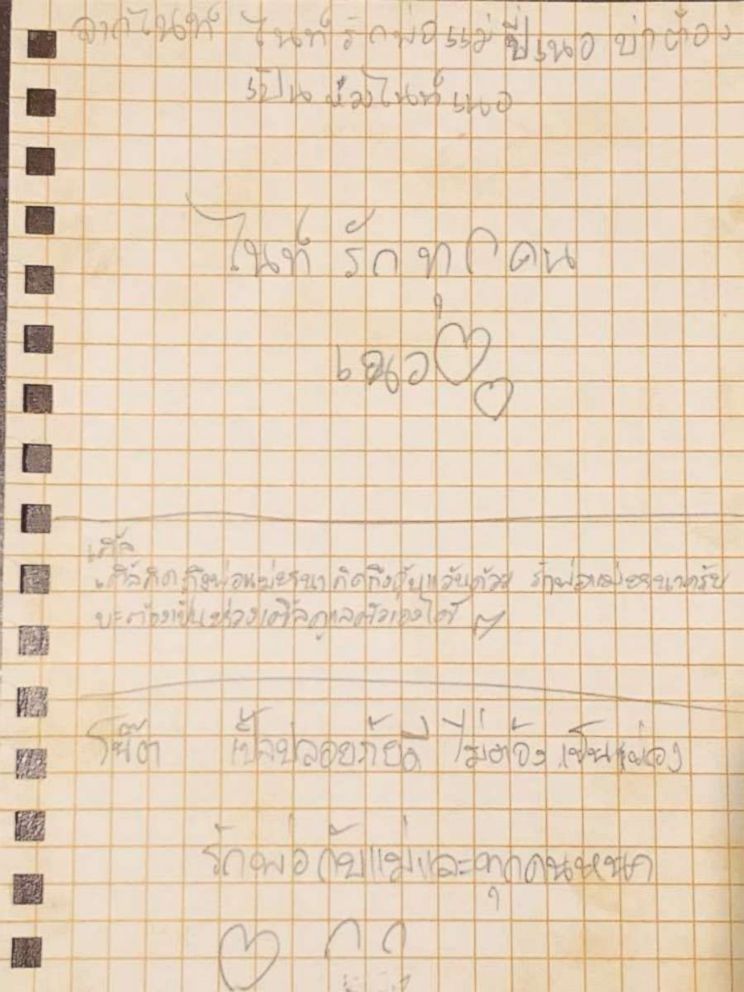 จากไนท์ ไนท์รักพ่อแม่ ปี่เนอ บ่าต้อง
เป็นห่วงไนท์เนอ
ไนท์ รัก ทุกคน
เนอ
เติ้ล
เติ้ลคิดถึงพ่อแม่ รักพ่อแม่
บะต้องเป็นห่วงเติ้ลดูแลตัวเองได้
โน๊ต เป้ปลอยภัยดี ไม่ต้อง เป็นห่วง
รักพ่อกับแม่และทุกคนหนา